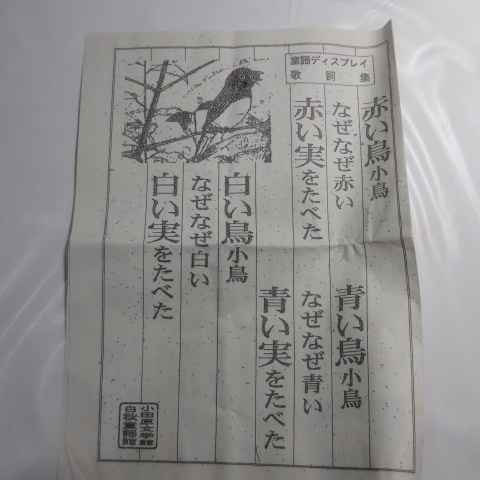 童謡ディスプレイ
歌詞集
赤い鳥小鳥
なぜなぜ赤い
赤い実をたべた
白い鳥小鳥
なぜなぜ白い
白い実をたべた
青い鳥小鳥
なぜなぜ青い
青い実をたべた
小田原文学館
白秋童謡館